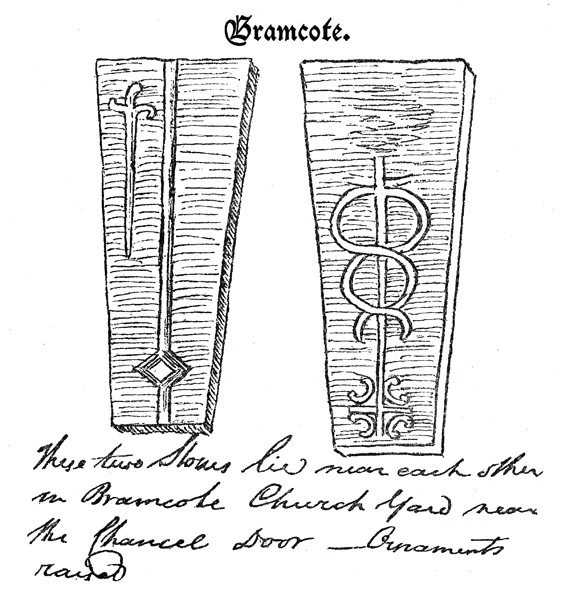 Bramcote.
These two Stones lie near each other
in Bramcote Church Yard near
the Chancel Door — Ornaments
raised